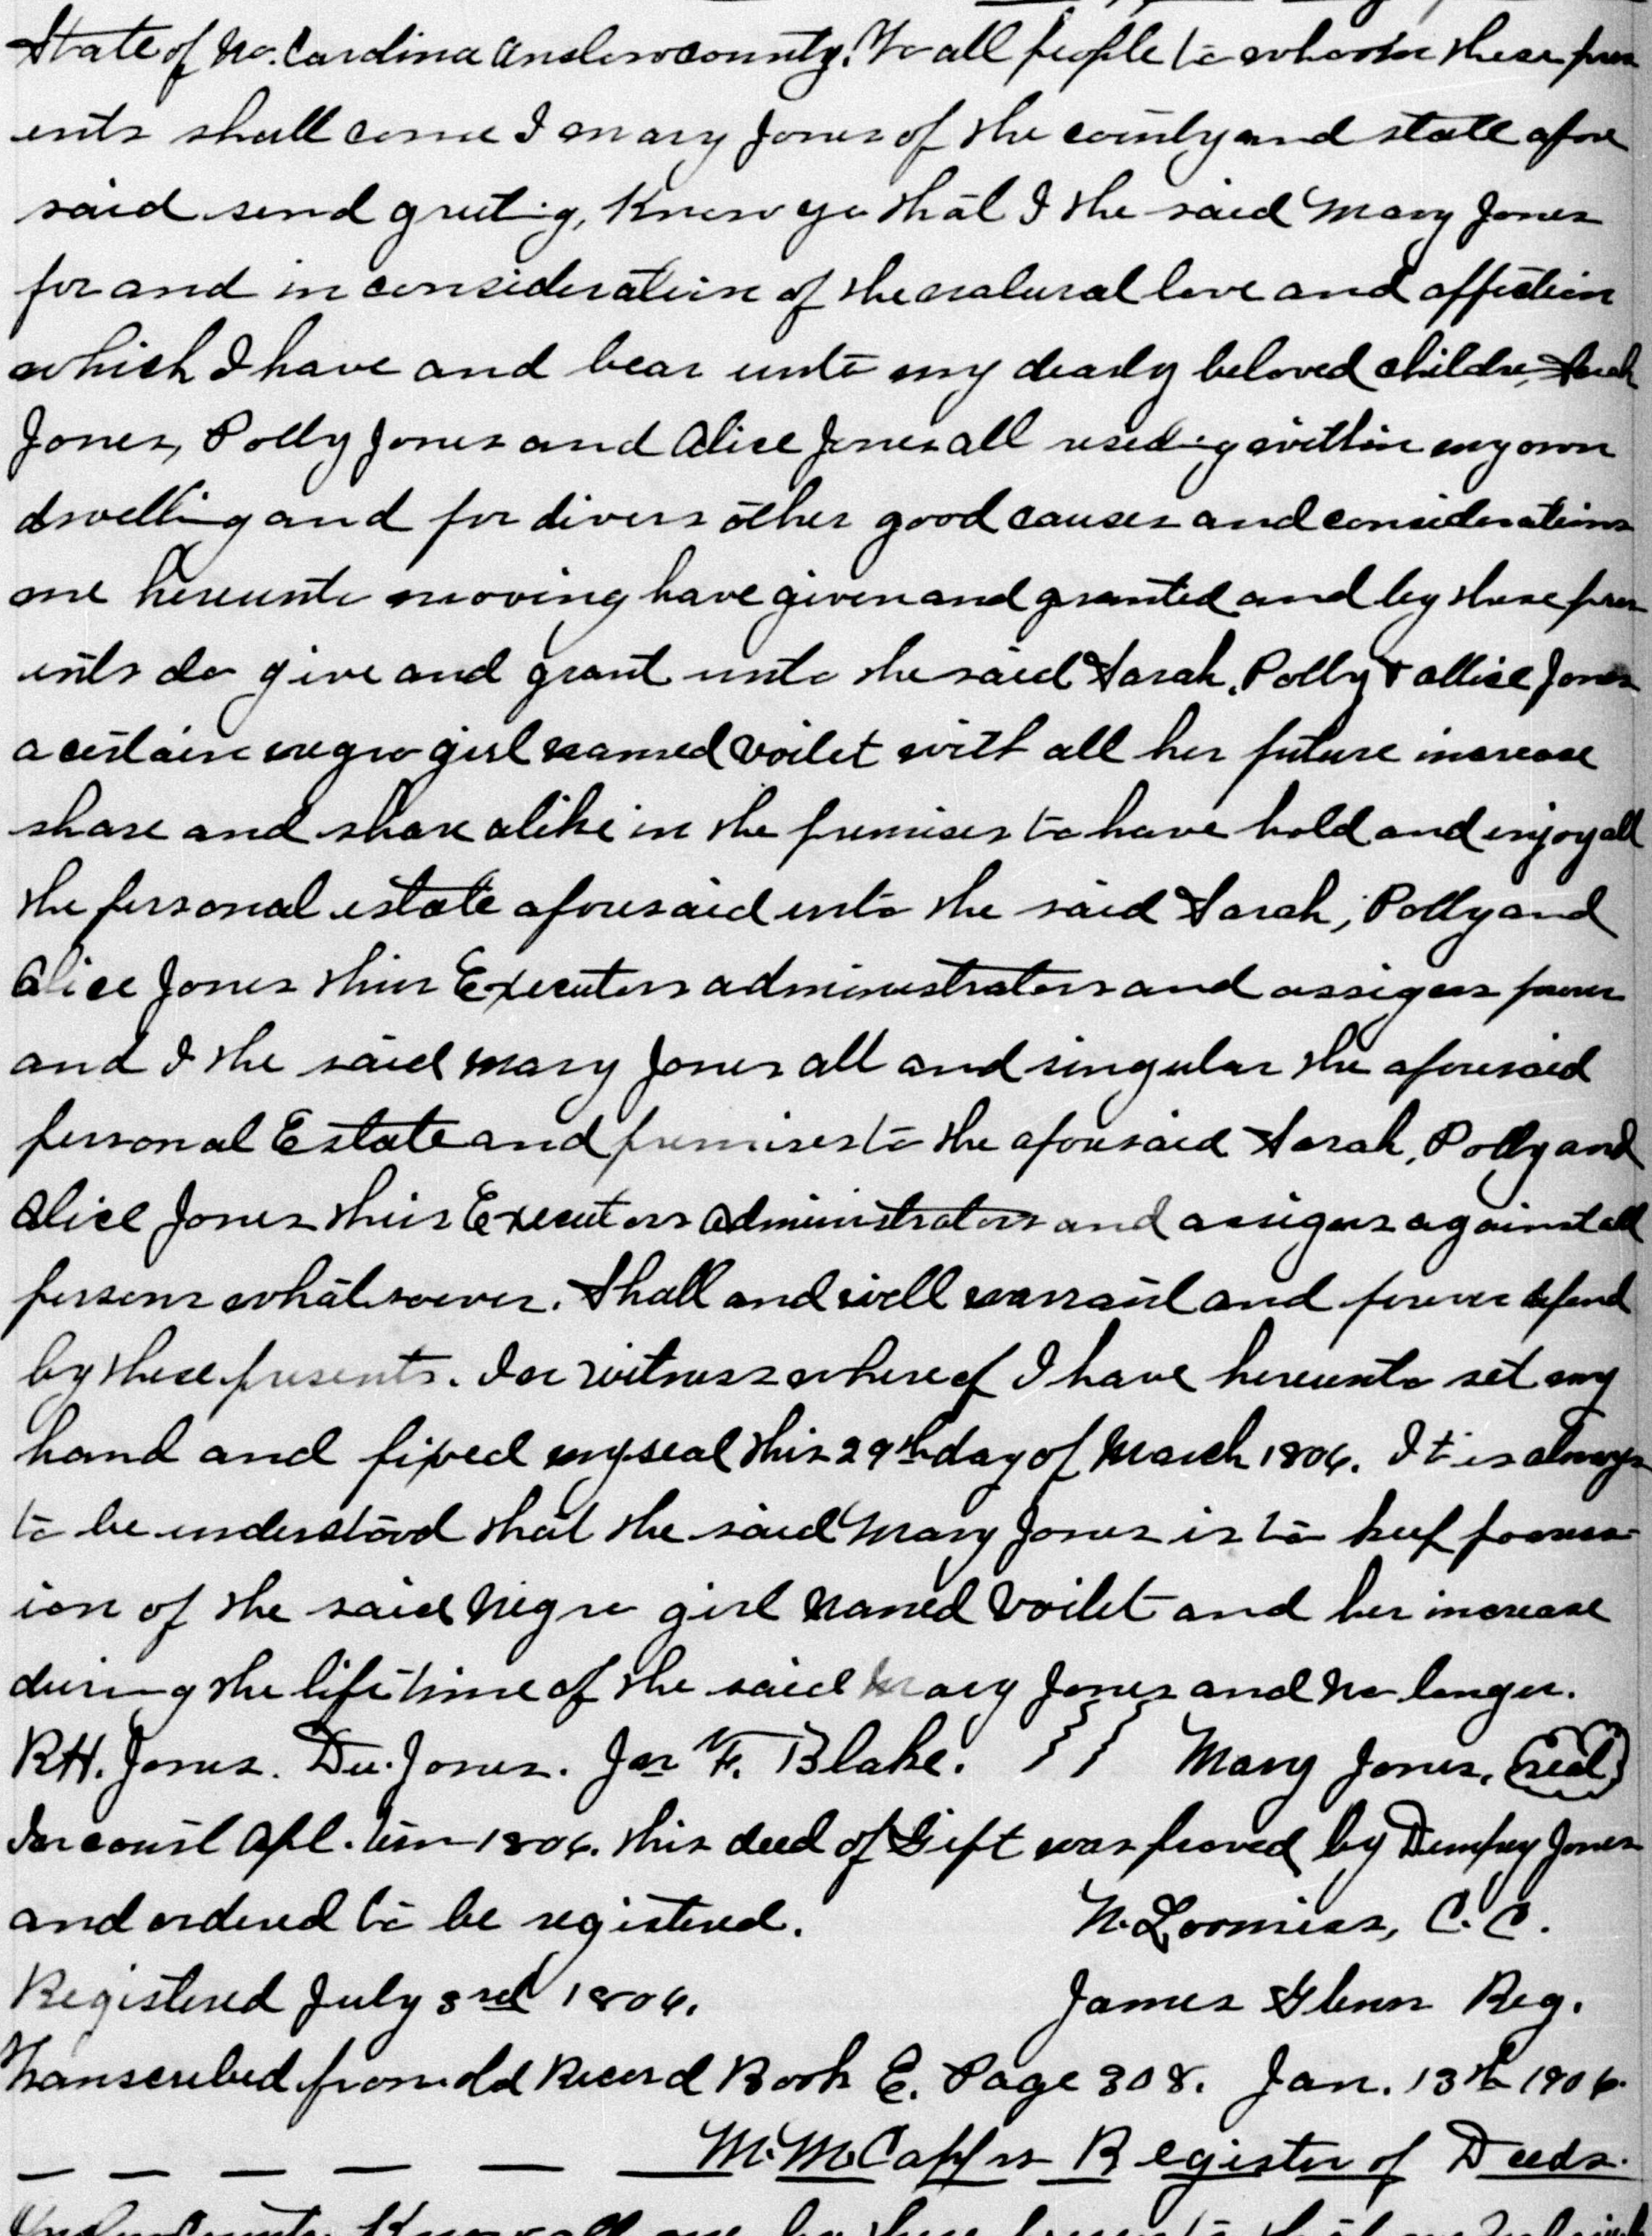 State of No. Carolina Onslow county. To all people to whom these pres
ents shall come I Mary Jones of the county and state afore
said send greeting, Know ye that I the said Mary Jones
for and in consideration of the natural love and affection
which I have and bear unto my dearly beloved childre, Sarah
Jones, Polly Jones and Alice Jones all residing within my own
dwelling and for divers other good causes and considerations
me hereunto moving have given and granted and by these pres
ents do give and grant unto the said Sarah, Polly & Allice Jones
a certain negro girl named Voilet with all her future increase
share and share alike in the premises to have hold and enjoy all
the personal estate aforesaid unto the said Sarah, Polly and
Alice Jones their Executors administrators and assigns forever
and I the said Mary Jones all and singular the aforesaid
personal Estate and premises to the aforesaid Sarah, Polly and
Alice Jones their Executors Administrators and assigns against all
persons whatsoever. Shall and will warrant and forever defend
by these presents. In witness whereof I have hereunto set my
hand and fixed my seal this 29th day of March 1806. It is always
to be understood that the said Mary Jones is to keep possess-
ion of the said Negro girl Named Voilet and her increase
during the life time of the said Mary Jones and no longer.
RH. Jones. De. Jones. Jas F. Blake. Mary Jones, (seal)
In court Apl. term 1806. this deed of Gift was proved by Dempsey Jones
and ordered to be registered. N. Loomiss, C.C.
Registered July 3rd 1806. James Glenn Reg.
Transcribed from old Record Book E. Page 308. Jan. 13th 1906.
M. M. Capps Register of Deeds.
Onslow County. Know all men by these presents that